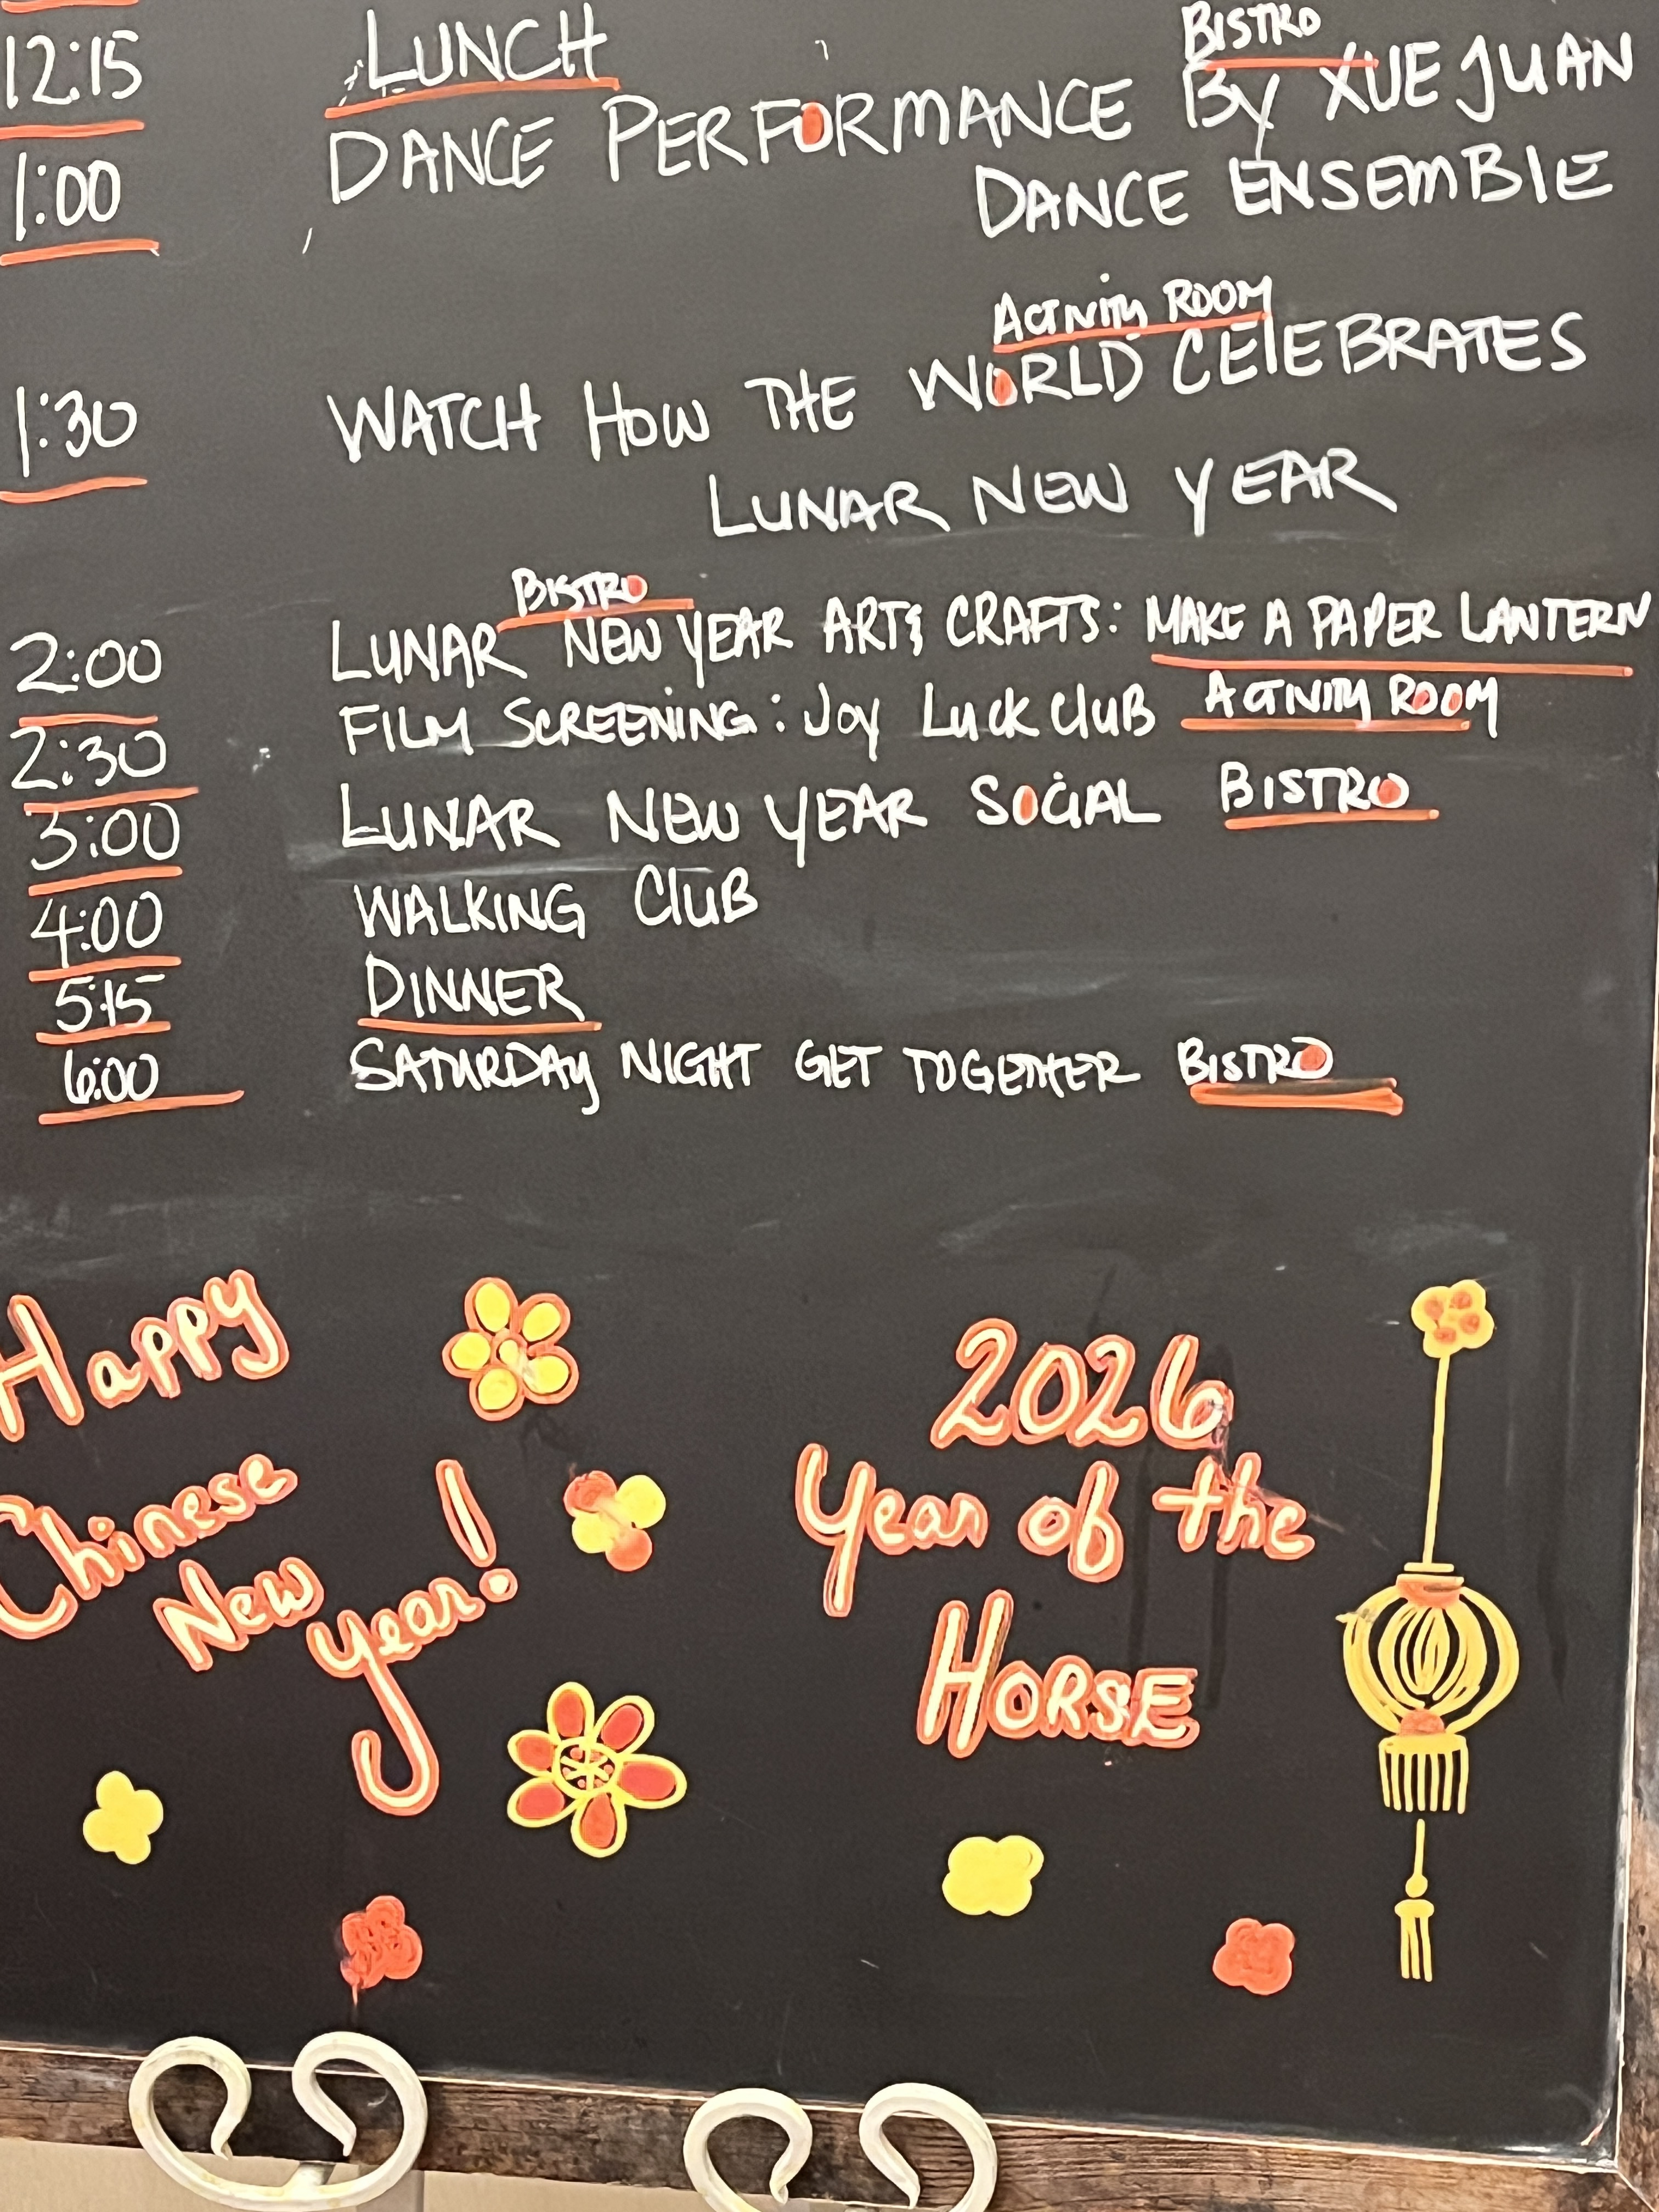 12:15 LUNCH
BISTRO
1:00 DANCE PERFORMANCE BY XUEJUAN
DANCE ENSEMBLE
ACTIVITY ROOM
1:30 WATCH HOW THE WORLD CELEBRATES
LUNAR NEW YEAR
BISTRO
2:00 LUNAR NEW YEAR ART & CRAFTS: MAKE A PAPER LANTERN
2:30 FILM SCREENING: Joy Luck Club ACTIVITY ROOM
3:00 LUNAR NEW YEAR SOCIAL BISTRO
4:00 WALKING CLUB
5:15 DINNER
6:00 SATURDAY NIGHT GET TOGETHER BISTRO
Happy
Chinese
New
Year!
2026
Year of the
HORSE